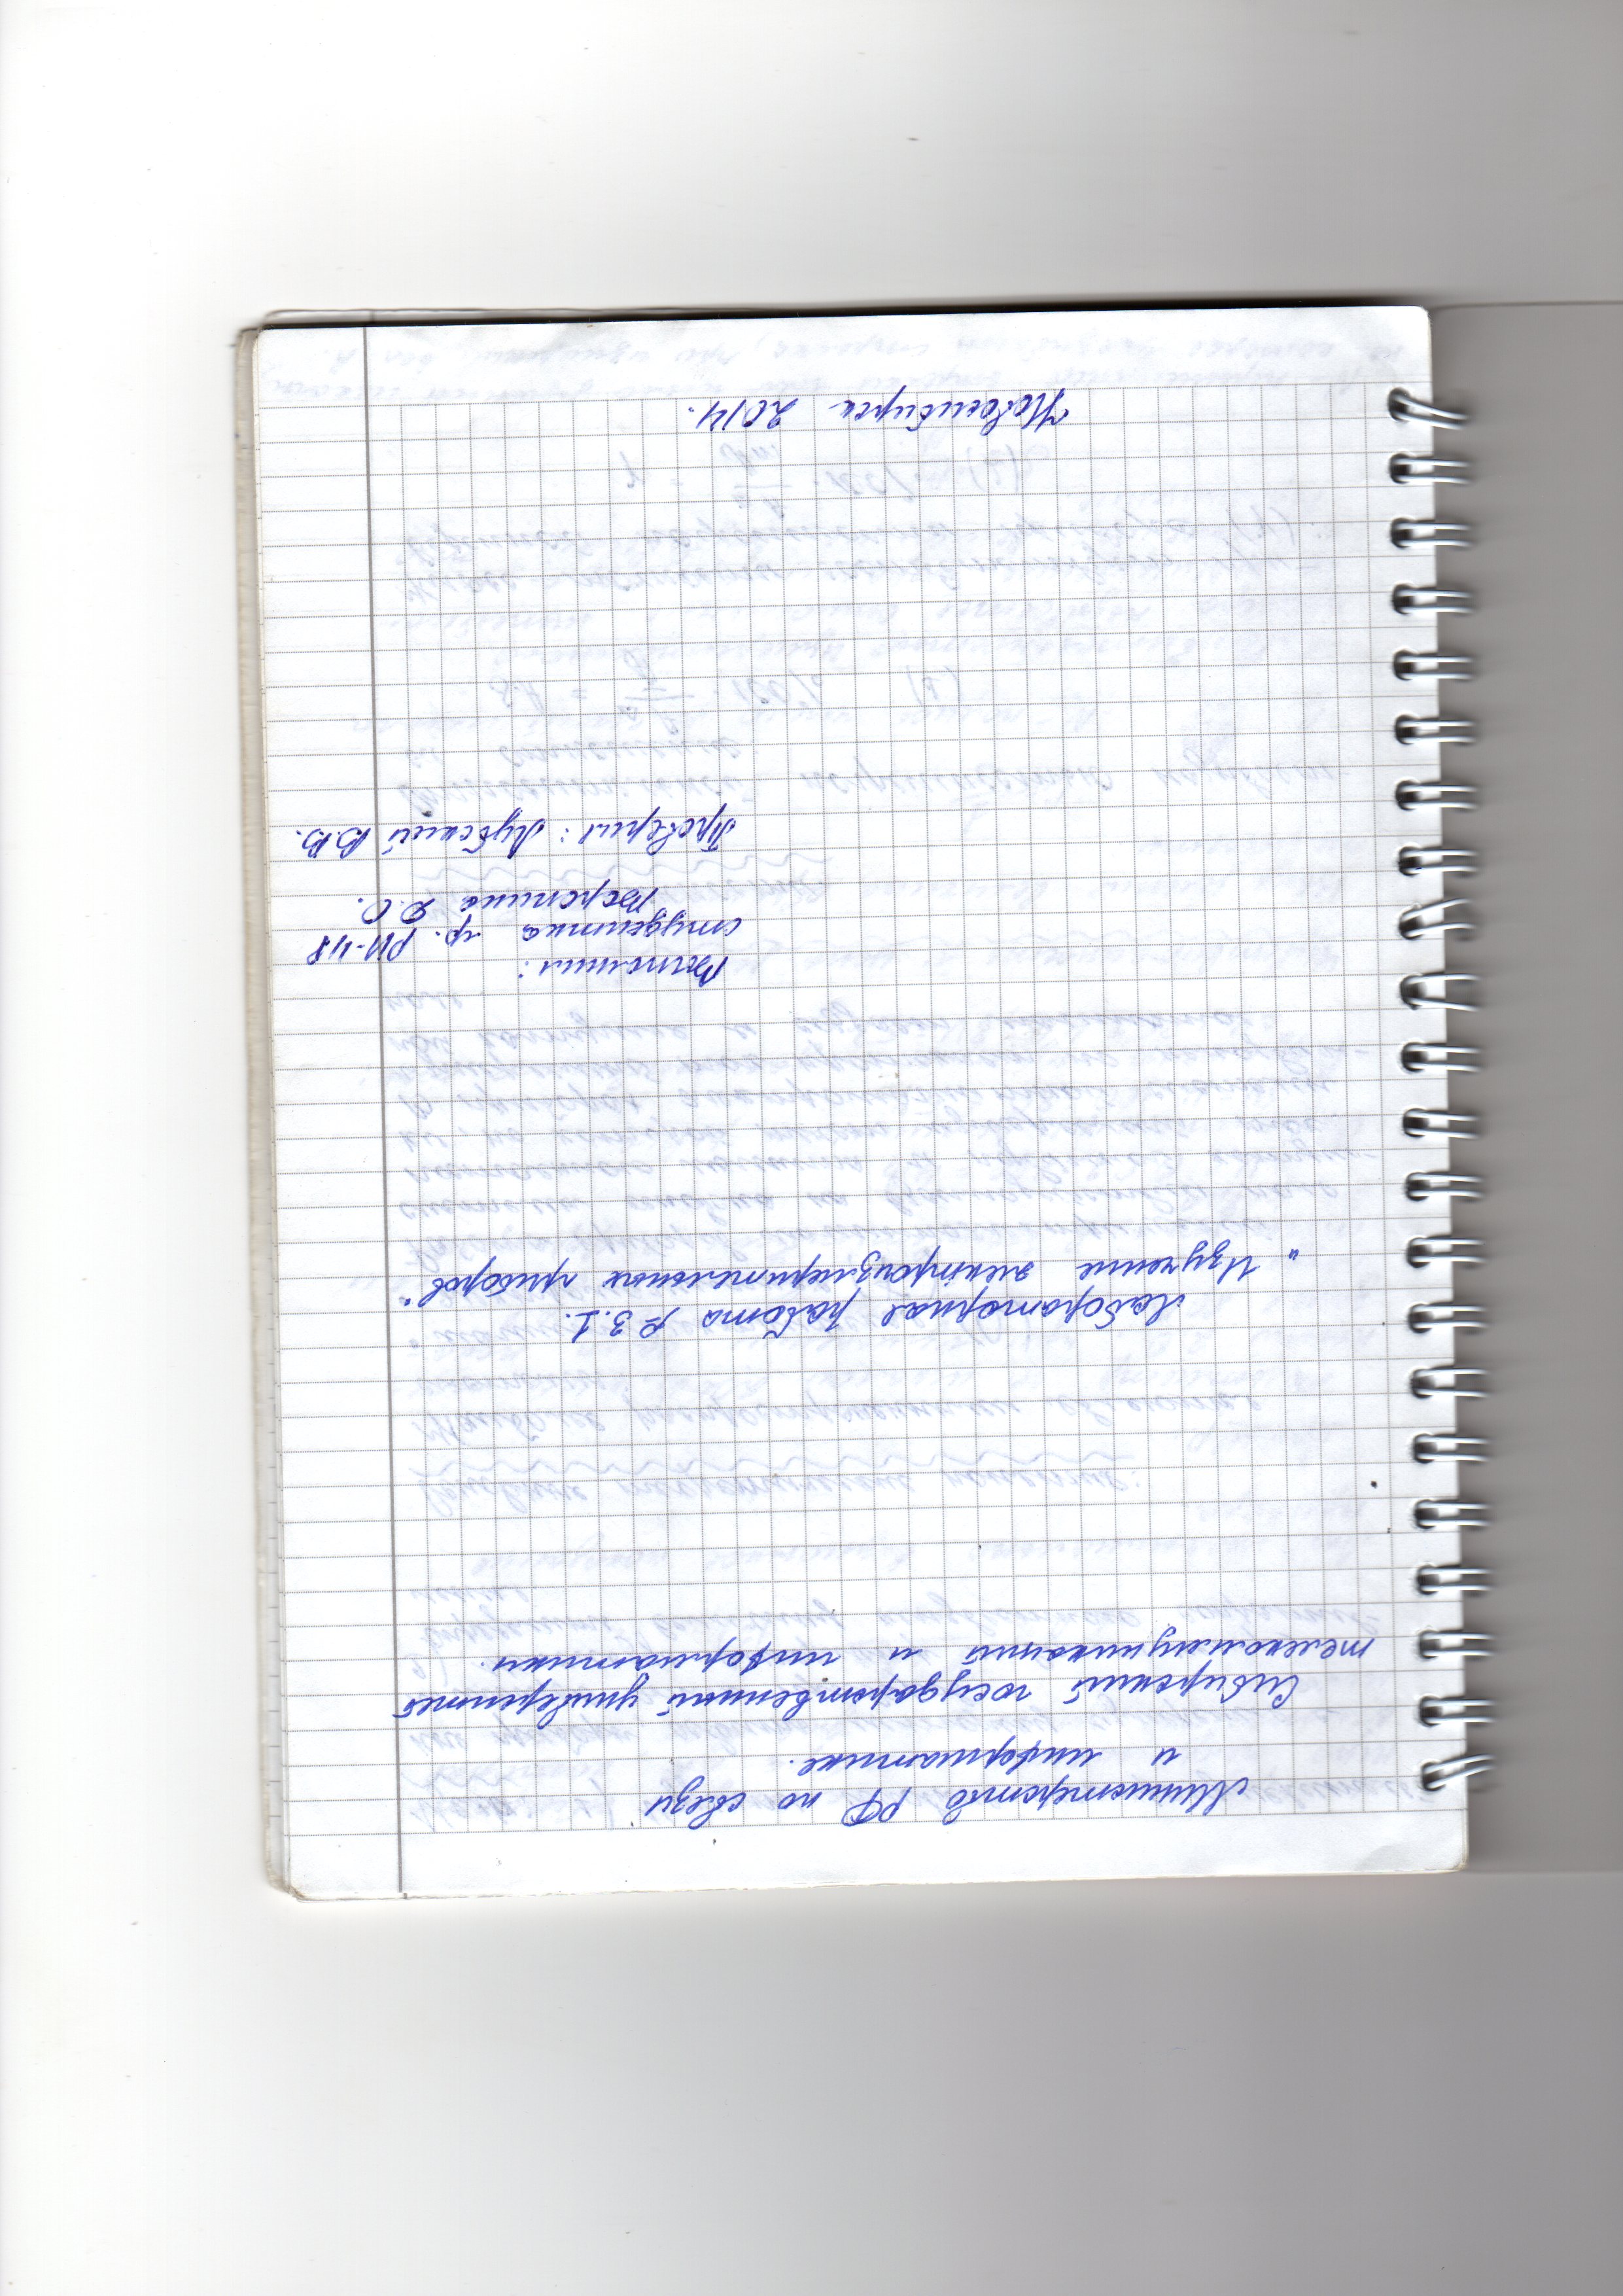 Министерство РФ по связи
и информатике.
Сибирский государственный университет
телекоммуникаций и информатики.
Лабораторная работа № 3.1.
„Изучение электроизмерительных приборов“
Выполнил:
студентка гр. РИ-48
Воронина Д.О.
Проверил: Лубский В.В.
Новосибирск 2014.